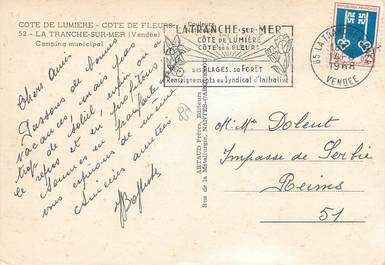 COTE DE LUMIERE - COTE DE FLEURS
52 - LA TRANCHE-SUR-MER (Vendée)
Camping municipal
Couleurs
LA TRANCHE-SUR-MER
CÔTE DE LUMIÈRE
CÔTE DES FLEURS
SES PLAGES, SA FORÊT
Renseignements au Syndicat d'Initiative
85 LA TRANCHE
VENDÉE
Chers amis
Passons de bonnes
vacances, mais pas
trop de soleil, enfin on
se repose et en profitons
Sommes en
vous en
Amicales amitiés
ARTAUD Frères, Éditeurs
Rue de la Métallurgie, NANTES-CARQUEFOU
85
M. Me Dolent
Impasse de Serbie
Reims
51